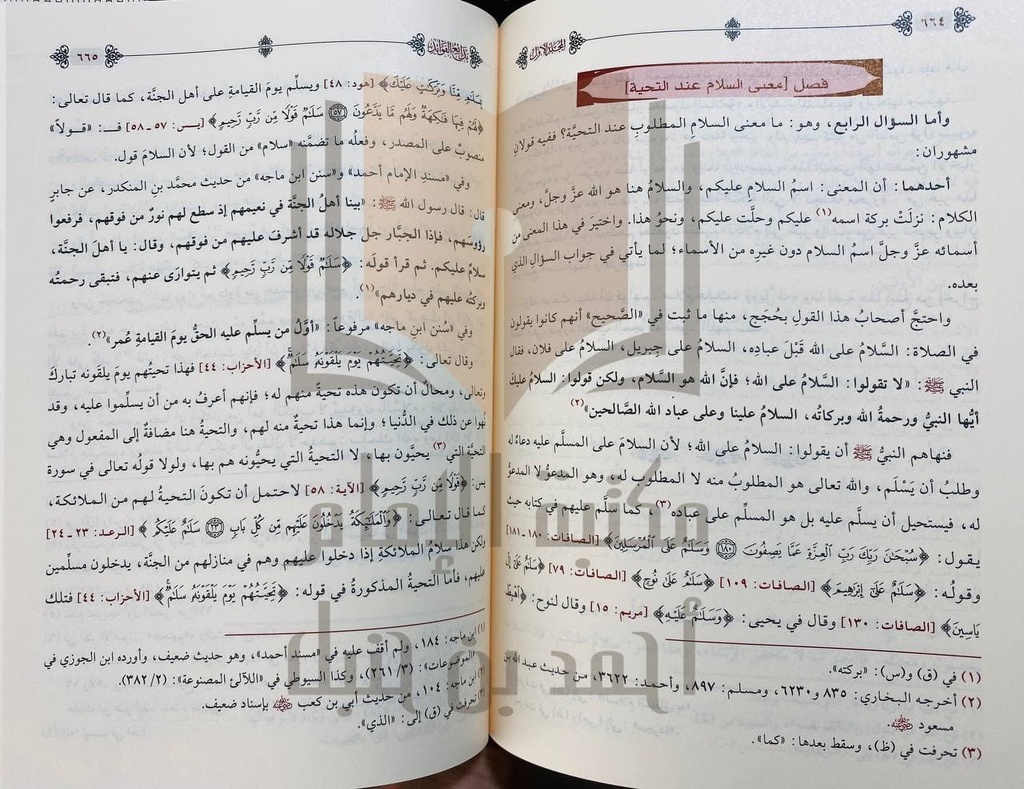 ٦٦٤
المجلد الأول
فصل [معنى السلام عند التحية]
وأما السؤال الرابع، وهو: ما معنى السلامِ المطلوبِ عند التحيَّة؟ ففيه قولانِ
مشهوران:
أحدهما: أن المعنى: اسمُ السلامِ عليكم، والسلامُ هنا هو الله عزَّ وجلَّ، ومعنى
الكلام: نزلَتْ بركة اسمه(١) عليكم وحلَّت عليكم، ونحوُ هذا. واختيرَ في هذا المعنى من
أسمائه عزَّ وجلَّ اسمُ السلام دون غيرِه من الأسماء؛ لما يأتي في جواب السؤالِ الذي
بعده.
واحتجَّ أصحابُ هذا القولِ بحُجَج، منها ما ثبت في «الصَّحيح» أنهم كانوا يقولون
في الصلاة: السَّلامُ على الله قَبْلَ عبادِه، السلامُ على جبريل، السلامُ على فلان، فقال
النبي ﷺ: «لا تقولوا: السَّلامُ على الله؛ فإنَّ الله هو السَّلام، ولكن قولوا: السلامُ عليك
أيُّها النبيُّ ورحمةُ الله وبركاتُه، السلامُ علينا وعلى عباد الله الصَّالحين»(٢)
فنهاهم النبيُّ ﷺ أن يقولوا: السلامُ على الله؛ لأن السلامَ على المسلَّم عليه دعاءٌ له
وطلبُ أن يَسْلَم، والله تعالى هو المطلوبُ منه لا المطلوب له، وهو المدعوُّ لا المدعوُّ
له، فيستحيل أن يسلَّم عليه بل هو المسلِّم على عباده(٣)، كما سلَّم عليهم في كتابه حيث
يقول: ﴿سُبْحَانَ رَبِّكَ رَبِّ الْعِزَّةِ عَمَّا يَصِفُونَ ۝١٨٠ وَسَلَامٌ عَلَى الْمُرْسَلِينَ﴾ [الصافات: ١٨٠-١٨١]
وقولُه: ﴿سَلَامٌ عَلَى إِبْرَاهِيمَ﴾ [الصافات: ١٠٩] ﴿سَلَامٌ عَلَى نُوحٍ﴾ [الصافات: ٧٩] ﴿سَلَامٌ عَلَى إِلْ
يَاسِينَ﴾ [الصافات: ١٣٠] وقال في يحيى: ﴿وَسَلَامٌ عَلَيْهِ﴾ [مريم: ١٥] وقال لنوح: ﴿اهْبِطْ
(١) في (ق) و(س): "بركته".
(٢) أخرجه البخاري: ٨٣٥ و٦٢٣٠، ومسلم: ٨٩٧، وأحمد: ٣٦٢٢، من حديث عبد الله بن
مسعود ﷺ.
(٣) تحرفت في (ظ)، وسقط بعدها: «كما».
بدائع الفوائد
٦٦٥
بِسَلَامٍ مِّنَّا وَبَرَكَاتٍ عَلَيْكَ﴾ [هود: ٤٨] ويسلِّم يومَ القيامةِ على أهل الجنَّة، كما قال تعالى:
﴿لَهُمْ فِيهَا فَاكِهَةٌ وَلَهُم مَّا يَدَّعُونَ ۝٥٧ سَلَامٌ قَوْلًا مِن رَّبٍّ رَّحِيمٍ﴾ [يس: ٥٧ـ٥٨] فـ: «قولاً»
منصوبٌ على المصدر، وفعلُه ما تضمَّنه «سلام» من القول؛ لأن السلامَ قول.
وفي «مسندِ الإمام أحمد» و«سنن ابن ماجه» من حديث محمَّد بن المنكدر، عن جابرٍ
قال: قال رسول الله ﷺ: «بينا أهلُ الجنَّة في نعيمهم إذ سطع لهم نورٌ من فوقهم، فرفعوا
رؤوسَهم، فإذا الجبَّار جل جلاله قد أشرفَ عليهم من فوقهم، وقال: يا أهلَ الجنَّة،
سلامٌ عليكم. ثم قرأ قولَه: ﴿سَلَامٌ قَوْلًا مِن رَّبٍّ رَّحِيمٍ﴾ ثم يتوارَى عنهم، فتبقى رحمتُه
وبركتُه عليهم في ديارهم»(١).
وفي «سُنن ابن ماجه» مرفوعاً: «أوَّلُ من يسلِّم عليه الحقُّ يومَ القيامةِ عُمر»(٢).
وقال تعالى: ﴿تَحِيَّتُهُمْ يَوْمَ يَلْقَوْنَهُ سَلَامٌ﴾ [الأحزاب: ٤٤] فهذا تحيتُهم يومَ يلقَونه تباركَ
وتعالى، ومحالٌ أن تكون هذه تحيةً منهم له؛ فإنهم أعرفُ به من أن يسلِّموا عليه، وقد
نُهوا عن ذلك في الدُّنيا؛ وإنما هذا تحيةٌ منه لهم، والتحيةُ هنا مضافةٌ إلى المفعول وهي
التحيَّة التي(٣) يحيَّون بها، لا التحيةُ التي يحيُّونه هم بها، ولولا قولُه تعالى في سورة
يس: ﴿قَوْلًا مِن رَّبٍّ رَّحِيمٍ﴾ [الآية: ٥٨] لاحتمل أن تكونَ التحيةُ لهم من الملائكة،
كما قال تعالى: ﴿وَالْمَلَائِكَةُ يَدْخُلُونَ عَلَيْهِم مِّن كُلِّ بَابٍ ۝٢٣ سَلَامٌ عَلَيْكُم﴾ [الرعد: ٢٣-٢٤]
ولكن هذا سلامُ الملائكةِ إذا دخلوا عليهم وهم في منازلهم من الجنَّة، يدخلون مسلِّمين
عليهم، فأما التحيةُ المذكورةُ في قوله: ﴿تَحِيَّتُهُمْ يَوْمَ يَلْقَوْنَهُ سَلَامٌ﴾ [الأحزاب: ٤٤] فتلك
(١) ابن ماجه: ١٨٤، ولم أقف عليه في «مسند أحمد»، وهو حديث ضعيف، وأورده ابن الجوزي في
«الموضوعات»: (٢٦١/٣)، وكذا السيوطي في «اللآلئ المصنوعة»: (٣٨٢/٢).
(٢) ابن ماجه: ١٠٤، من حديث أبي بن كعب ﷺ بإسناد ضعيف.
(٣) تحرفت في (ق) إلى: «الذي».
مكتبة الإمام
أحمد بن حنبل